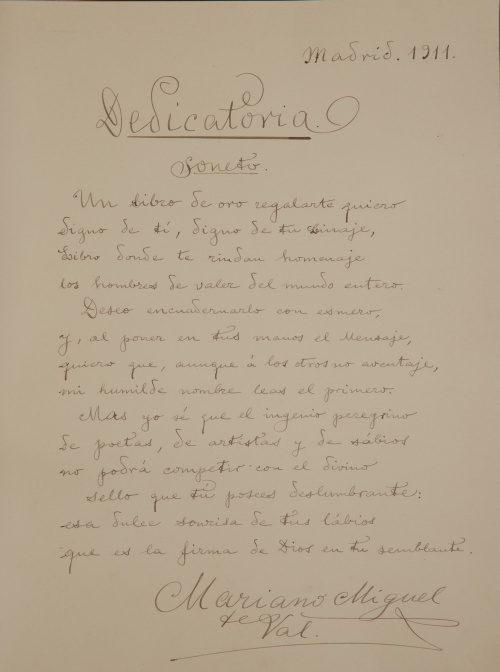 Madrid. 1911.
Dedicatoria.
Soneto.
Un libro de oro regalarte quiero
digno de tí, digno de tu linaje,
Libro donde te rindan homenaje
los hombres de valer del mundo entero.
Deseo encuadernarlo con esmero,
y, al poner en tus manos el Mensaje,
quiero que, aunque á los otros no aventaje,
mi humilde nombre leas el primero.
Mas yo sé que el ingenio peregrino
de poetas, de artistas y de sábios
no podrá competir con el divino
sello que tú posees deslumbrante:
esa dulce sonrisa de tus lábios
que es la firma de Dios en tu semblante.
Mariano Miguel
de
Val.